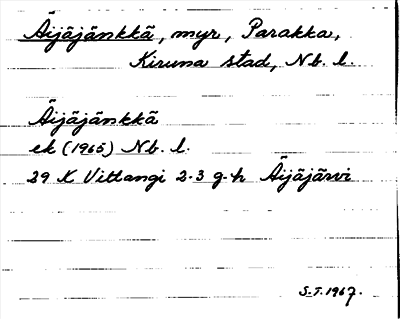 Äijäjänkkä, myr, Parakka,
Kiruna stad, Nb. l.
Äijäjänkkä
ek (1965) Nb. l.
29 K Vittangi 2-3 g-h Äijäjärvi
S.T. 1967.